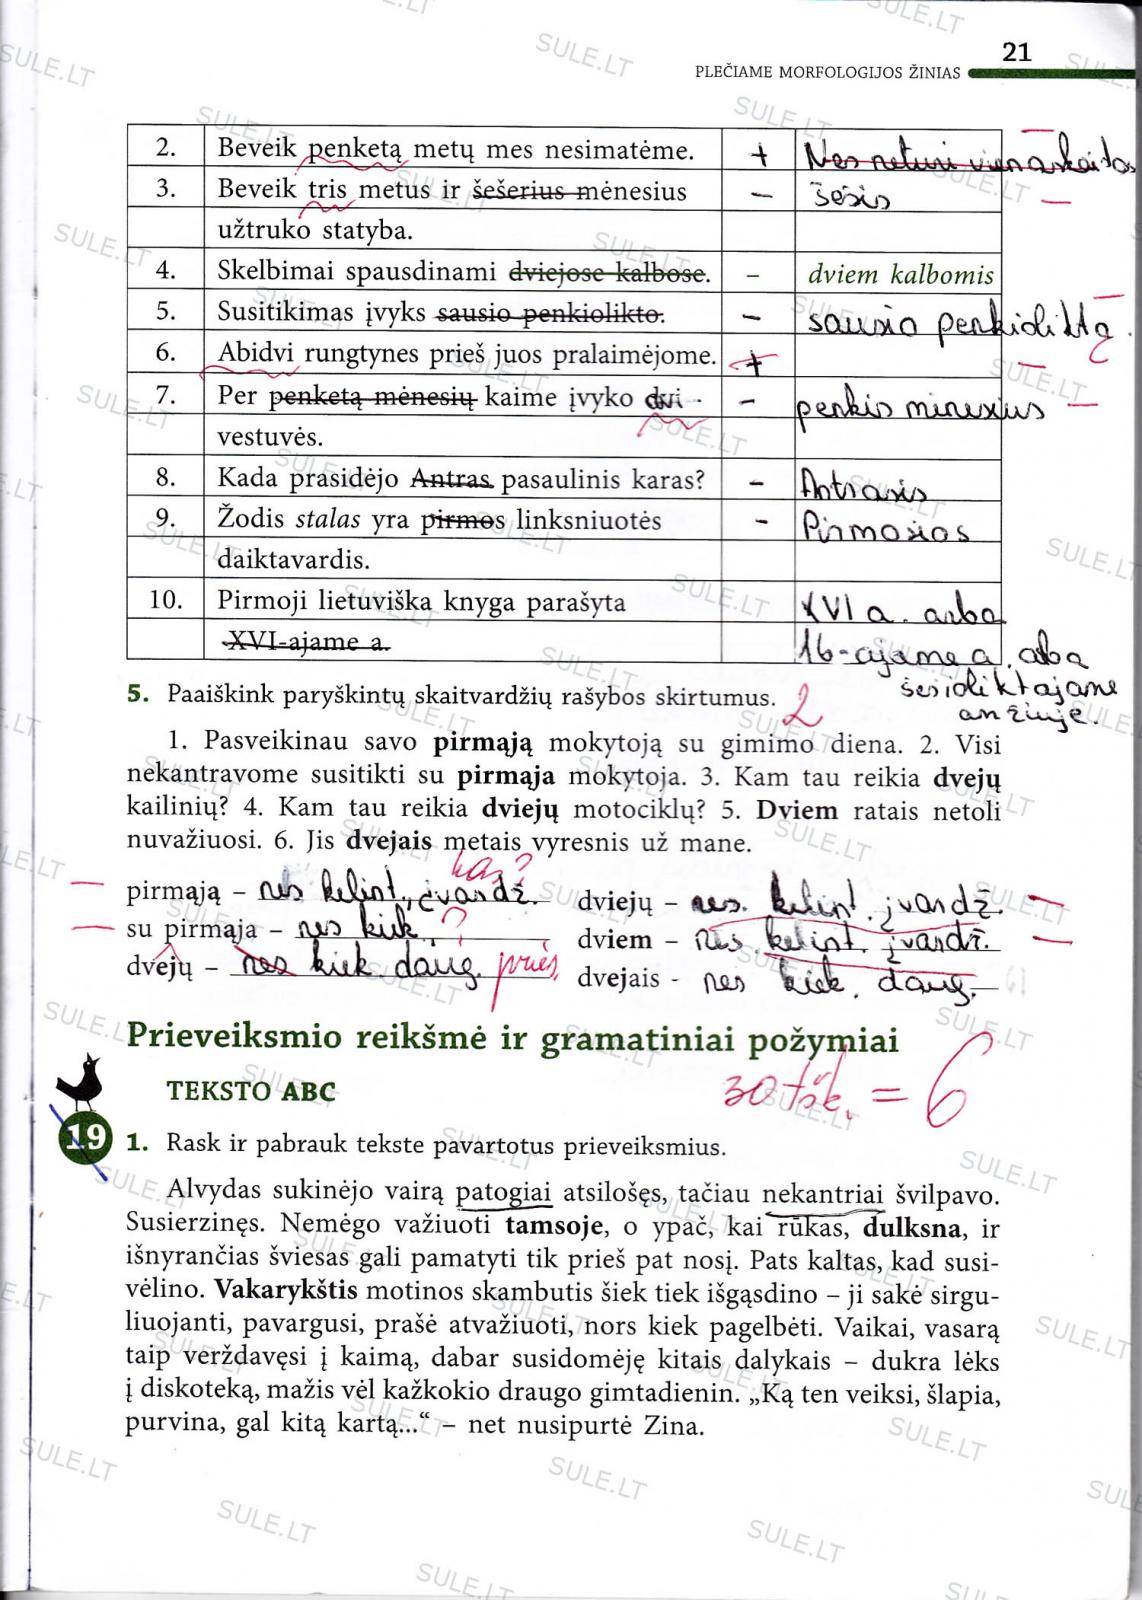 21
PLEČIAME MORFOLOGIJOS ŽINIAS
2. Beveik penketą metų mes nesimatėme. + Nes neturi vienaskaitos
3. Beveik tris metus ir šešerius mėnesius – šešis
užtruko statyba.
4. Skelbimai spausdinami dviejose kalbose. – dviem kalbomis
5. Susitikimas įvyks sausio penkiolikto. – sausio penkioliktą.
6. Abidvi rungtynes prieš juos pralaimėjome. +
7. Per penketą mėnesių kaime įvyko dvi – penkis mėnesius
vestuvės.
8. Kada prasidėjo Antras pasaulinis karas? – Antrasis
9. Žodis stalas yra pirmos linksniuotės – Pirmosios
daiktavardis.
10. Pirmoji lietuviška knyga parašyta XVI a. arba
XVI-ajame a. 16-ajame a. arba
5. Paaiškink paryškintų skaitvardžių rašybos skirtumus. 2 šešioliktajame
amžiuje.
1. Pasveikinau savo pirmąją mokytoją su gimimo diena. 2. Visi
nekantravome susitikti su pirmąja mokytoja. 3. Kam tau reikia dvejų
kailinių? 4. Kam tau reikia dviejų motociklų? 5. Dviem ratais netoli
nuvažiuosi. 6. Jis dvejais metais vyresnis už mane.
kas?
pirmąją – nes kelint. įvardž. dviejų – nes. kelint. įvardž.
su pirmąja – nes kiek. ? dviem – nes kelint. įvardž.
dvejų – nes kiek. daug. dvejais - nes kiek. daug.
Prieveiksmio reikšmė ir gramatiniai požymiai
30 tšk. = 6
TEKSTO ABC
19 1. Rask ir pabrauk tekste pavartotus prieveiksmius.
Alvydas sukinėjo vairą patogiai atsilošęs, tačiau nekantriai švilpavo.
Susierzinęs. Nemėgo važiuoti tamsoje, o ypač, kai rūkas, dulksna, ir
išnyrančias šviesas gali pamatyti tik prieš pat nosį. Pats kaltas, kad susi-
vėlino. Vakarykštis motinos skambutis šiek tiek išgąsdino – ji sakė sirgu-
liuojanti, pavargusi, prašė atvažiuoti, nors kiek pagelbėti. Vaikai, vasarą
taip verždavęsi į kaimą, dabar susidomėję kitais dalykais – dukra lėks
į diskoteką, mažis vėl kažkokio draugo gimtadienin. „Ką ten veiksi, šlapia,
purvina, gal kitą kartą...“ – net nusipurtė Zina.
SULE.LT